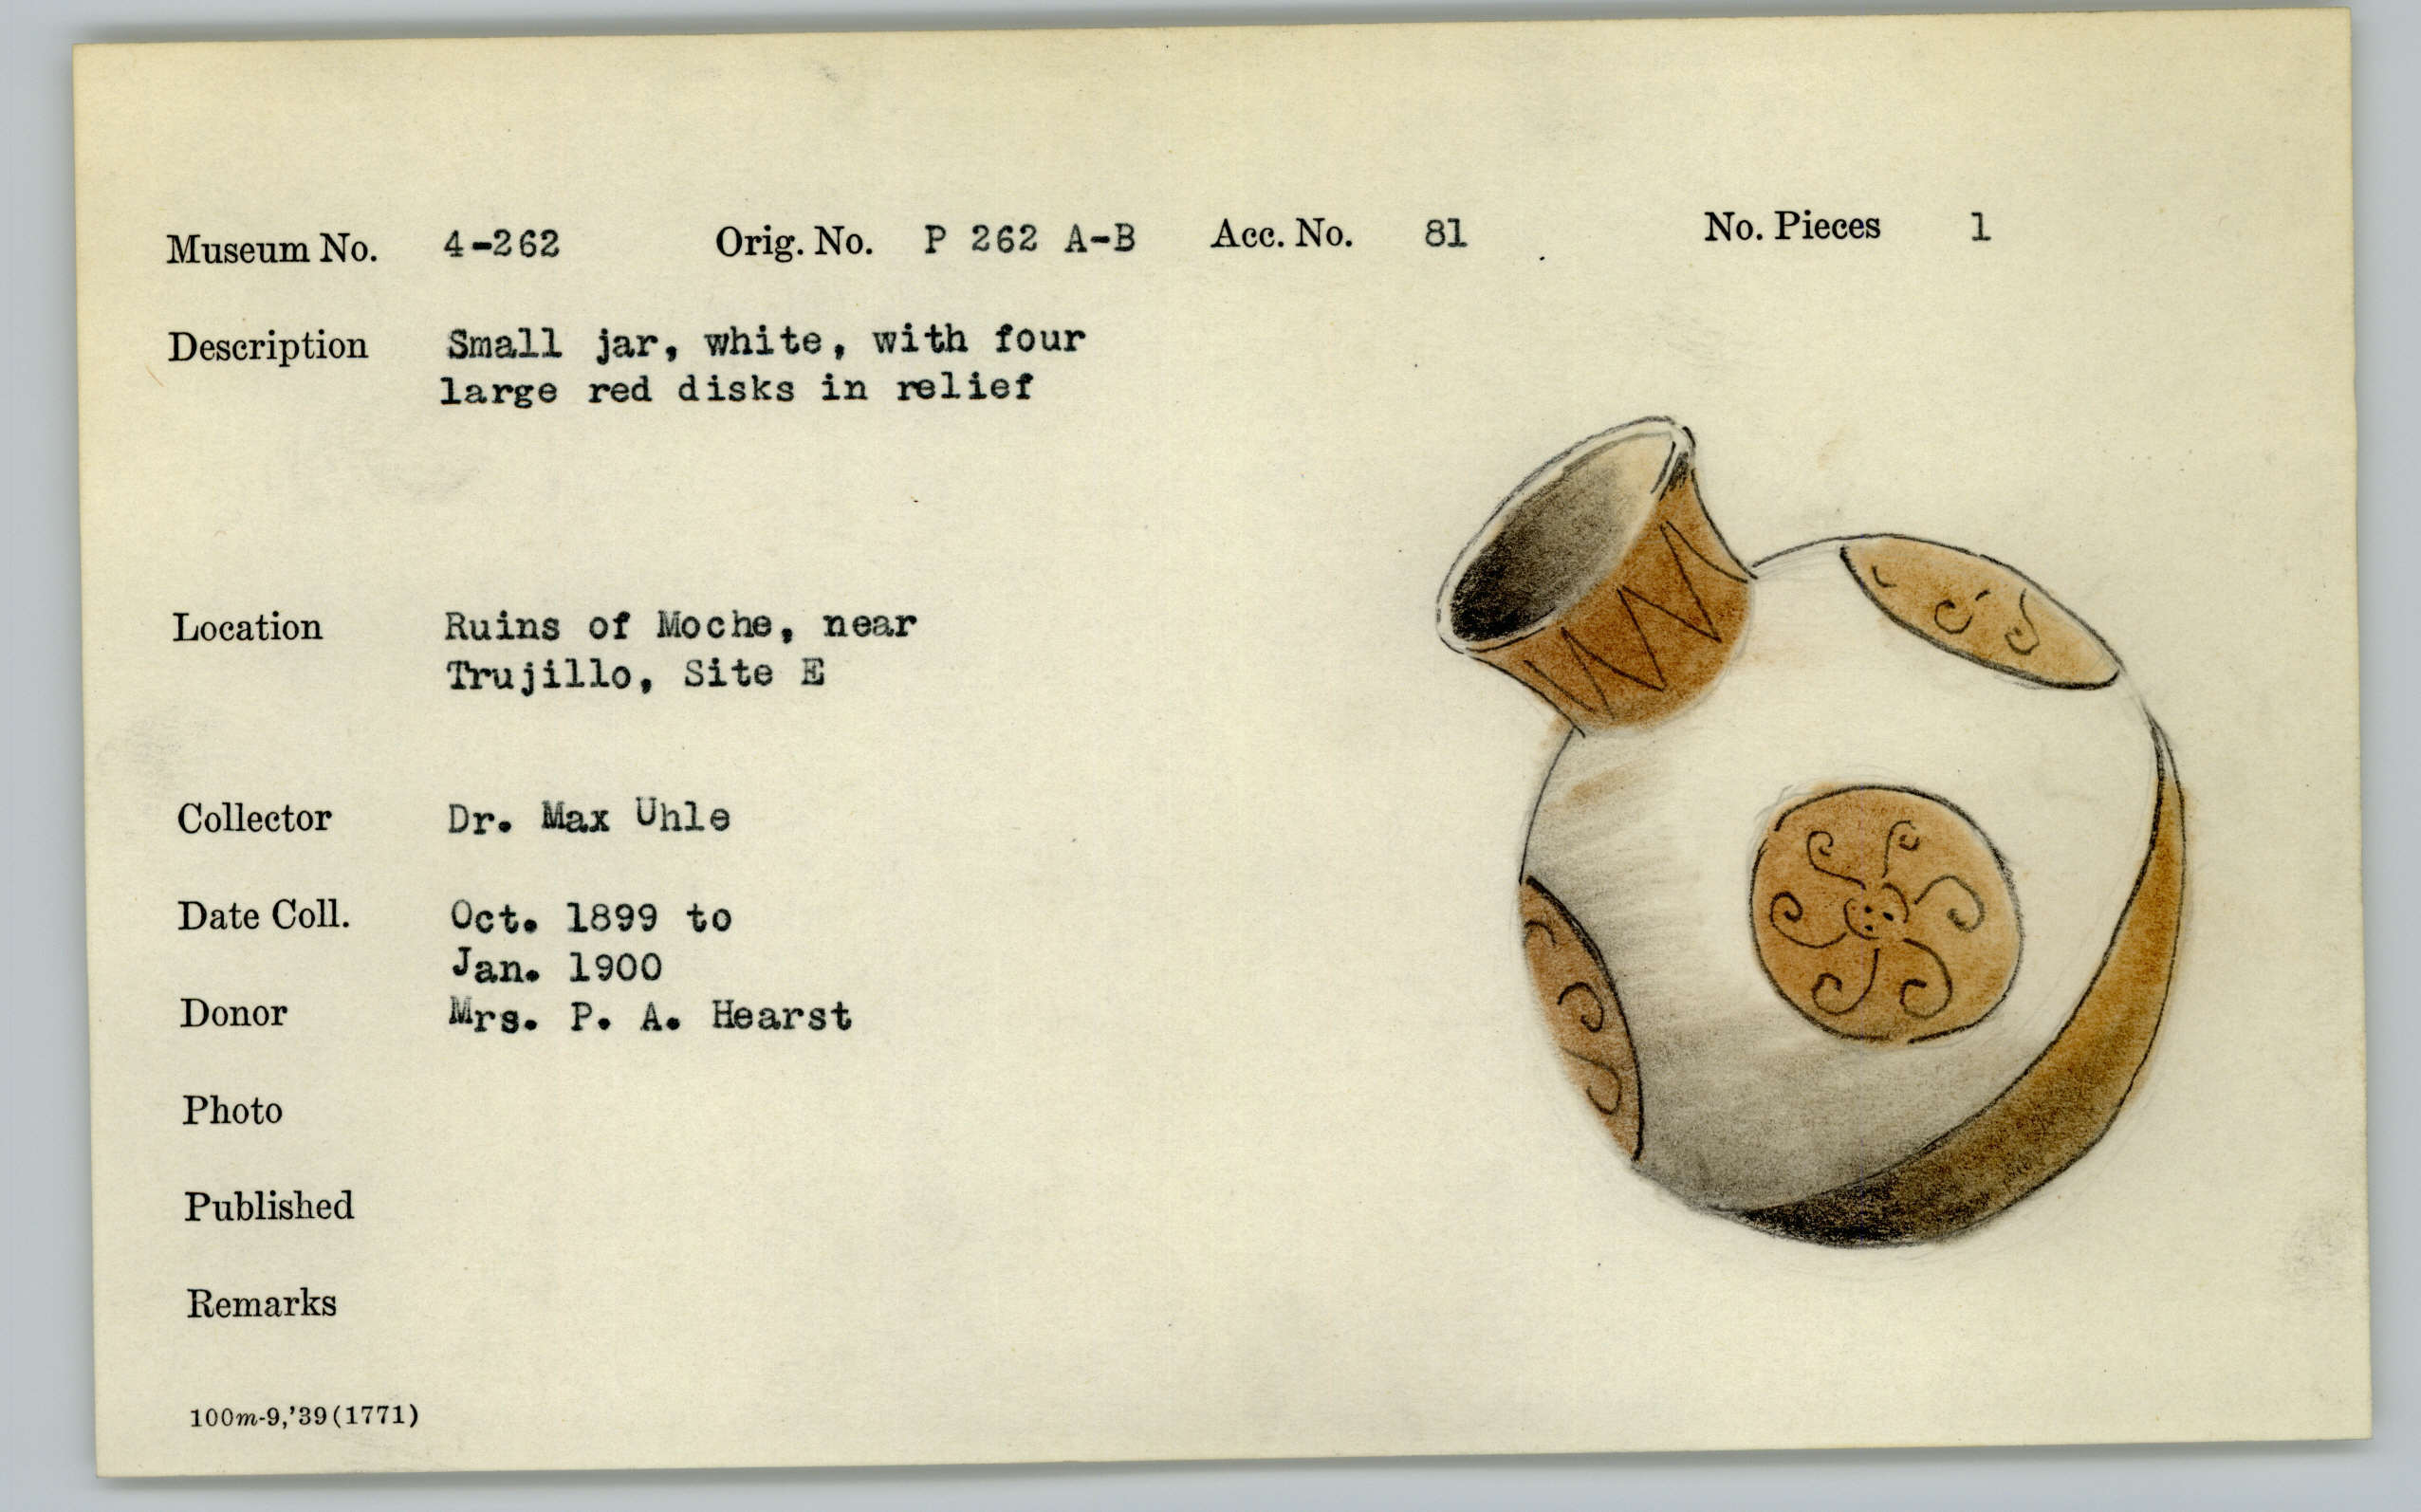 Museum No. 4-262 Orig. No. P 262 A-B Acc. No. 81 No. Pieces 1
Description Small jar, white, with four
large red disks in relief
Location Ruins of Moche, near
Trujillo, Site E
Collector Dr. Max Uhle
Date Coll. Oct. 1899 to
Jan. 1900
Donor Mrs. P. A. Hearst
Photo
Published
Remarks
100m-9,'39(1771)